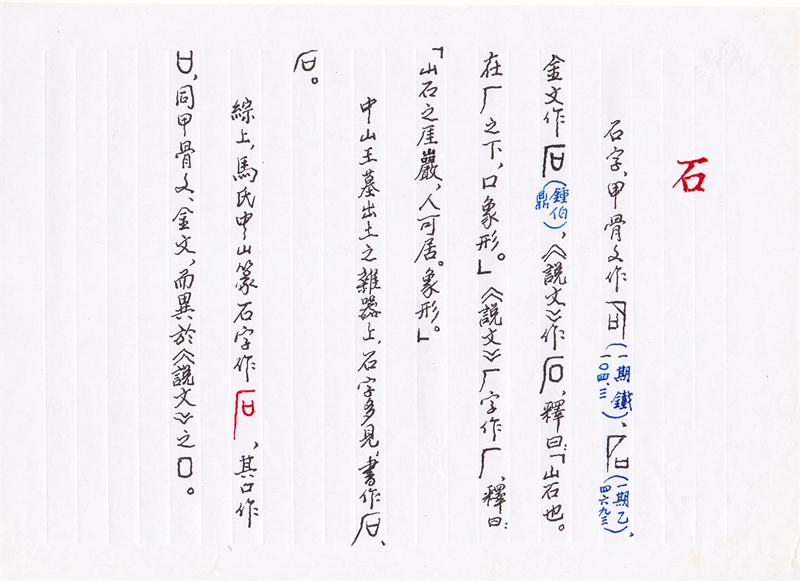 石
石字,甲骨文作(一期鐵一〇四.三)、(一期乙四六九三),
金文作(鐘伯鼎),《說文》作,釋曰:「山石也。
在厂之下,口象形。」《說文》厂字作厂,釋曰:
「山石之厓巖,人可居。象形。」
中山王墓出土之雜器上,石字多見,書作、
。
綜上,馬氏中山篆石字作,其口作
,同甲骨文、金文,而異於《說文》之口。